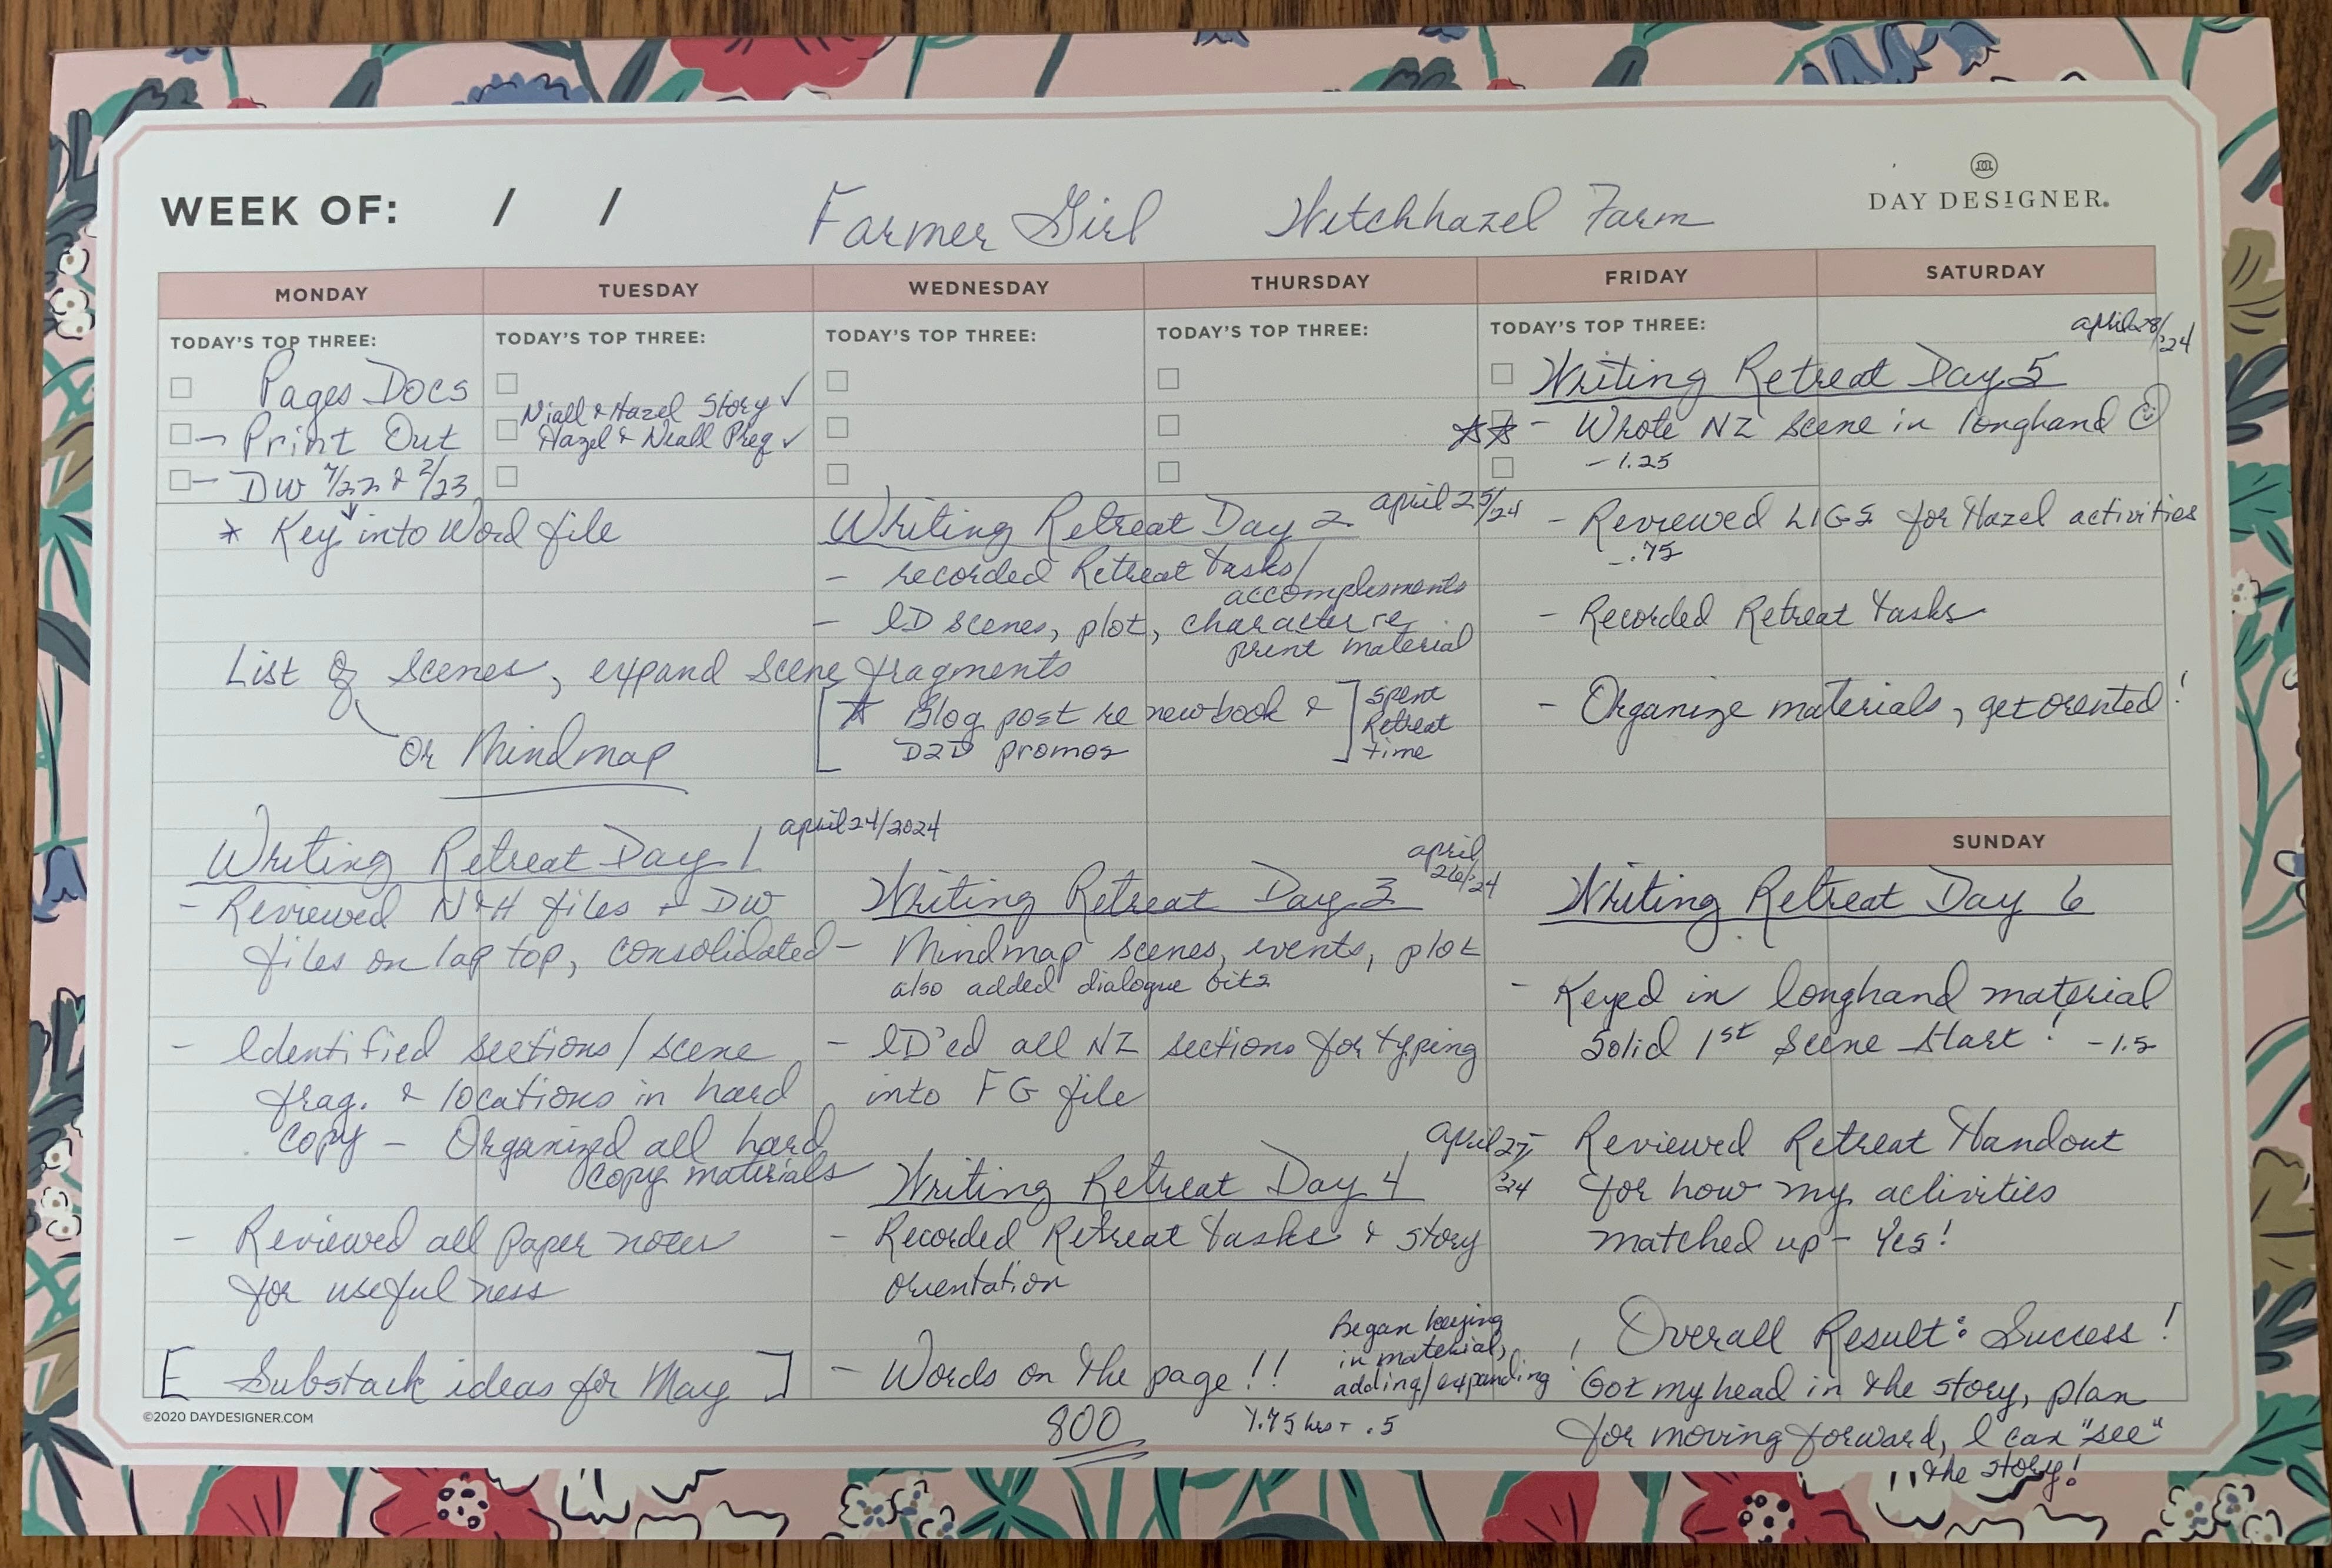 WEEK OF: / / Farmer Girl Witchhazel Farm
DAY DESIGNER.
MONDAY TUESDAY WEDNESDAY THURSDAY FRIDAY SATURDAY
TODAY'S TOP THREE:
Pages Docs
- Print Out
- DW 7/22 & 2/23
* Key into Word file
TODAY'S TOP THREE:
Niall & Hazel Story ✓
Hazel & Niall Preq ✓
List of scenes, expand scene fragments
or Mindmap
Writing Retreat Day 1 april 24/2024
- Reviewed N&H files & DW
files on lap top, consolidated
- Identified sections/scene
frag. & locations in hard
copy - Organized all hard
copy materials
- Reviewed all paper notes
for usefulness
[ Substack ideas for May ]
©2020 DAYDESIGNER.COM
TODAY'S TOP THREE:
TODAY'S TOP THREE:
Writing Retreat Day 2 april 25/24
- recorded Retreat tasks/
accomplisments
- ID scenes, plot, character re
print material
[ * Blog post re new book & ] spent
D2D promos Retreat
time
Writing Retreat Day 3 april
26/'24
- Mindmap scenes, events, plot
also added dialogue bits
- ID'ed all NZ sections for typing
into FG file
Writing Retreat Day 4 april 27/
'24
- Recorded Retreat tasks & story
orientation
- Words on the page!!
800
Began keying
in material,
adding/expanding
1.75 hrs + .5
TODAY'S TOP THREE:
april 28/
'24
Writing Retreat Day 5
** - Wrote NZ scene in longhand ☺
- 1.25
- Reviewed LIGS for Hazel activities
- .75
- Recorded Retreat tasks
- Organize materials, get oriented!
SUNDAY
Writing Retreat Day 6
- Keyed in longhand material
Solid 1st Scene start! - 1.5
- Reviewed Retreat Handout
for how my activities
matched up - Yes!
! Overall Result: Success!
Got my head in the story, plan
for moving forward, I can "see"
the story!